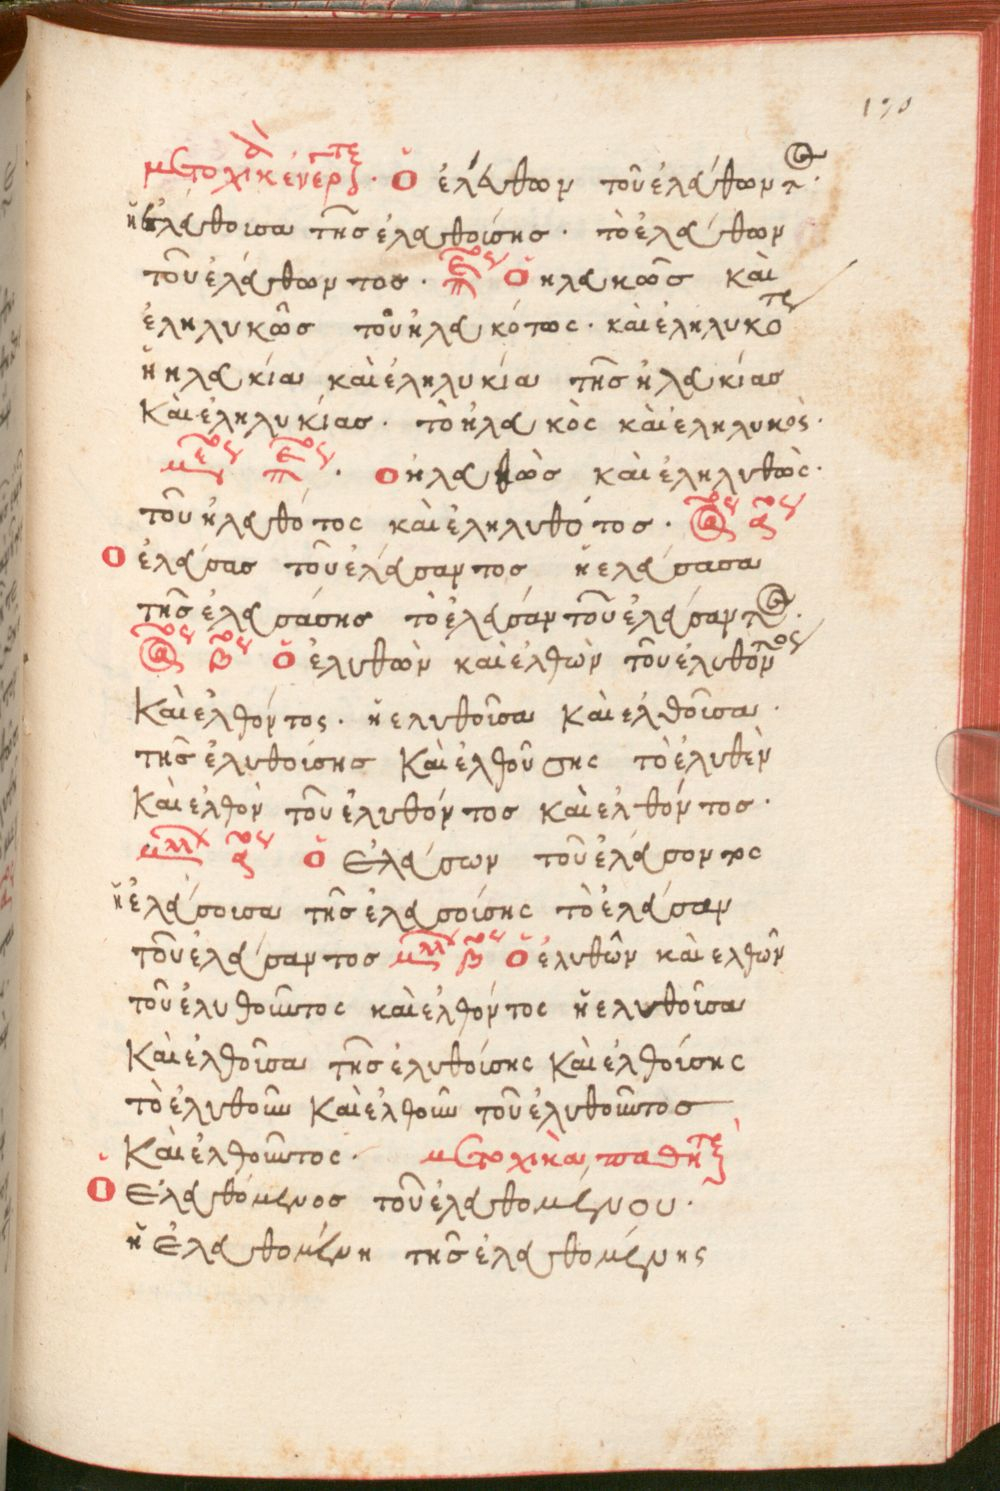 190
μετοχικὰ ἐνεργτ. ὁ ἐλάθων τοῦ ἐλάθωντος.
ἡ ἐλάθοισα τῆς ἐλαθοίσης. τὸ ἐλάθων
τοῦ ἐλάθωντος. ὁ ἠλακὼς καὶ
ἐληλυκὼς τοῦ ἠλακότος. καὶ ἐληλυκότ
ἡ ἠλακία καὶ ἐληλυκία τῆς ἠλακίας
καὶ ἐληλυκίας. τὸ ἠλακὸς καὶ ἐληλυκὸς.
ὁ ἠλαθὼς καὶ ἐληλυθὼς.
τοῦ ἠλαθότος καὶ ἐληλυθότος.
ὁ ἐλάσας τοῦ ἐλάσαντος ἡ ἐλάσασα
τῆς ἐλασάσης τὸ ἐλάσαν τοῦ ἐλάσαντος.
ὁ ἐλυθὼν καὶ ἐλθὼν τοῦ ἐλυθόντος
καὶ ἐλθόντος. ἡ ελυθοῖσα καὶ ἐλθοῖσα.
τῆς ἐλυθοίσης καὶ ἐλθοῦσης τὸ ἐλυθὲν
καὶ ἐλθὸν τοῦ ἐλυθόντος καὶ ἐλθόντος.
μλλ αου ὁ ἐλάσων τοῦ ἐλάσοντος
ἡ ἐλάσοισα τῆς ἐλασοίσης τὸ ἐλάσαν
τοῦ ἐλάσαντος μλλ βου ὁ ἐλυθῶν καὶ ελθῶν
τοῦ ἐλυθοῦντος καὶ ἐλθόντος ἡ ελυθοῖσα
καὶ ἐλθοῖσα τῆς ἐλυθοίσης καὶ ἐλθοίσης
τὸ ἐλυθοῦν καὶ ἐλθοῦν τοῦ ἐλυθοῦντος
καὶ ἐλθοῦντος. μετοχικὰ παθητ
ὁ ἐλαθόμενος τοῦ ἐλαθομένου.
ἡ ἐλαθομένη τῆς ἐλαθομένης